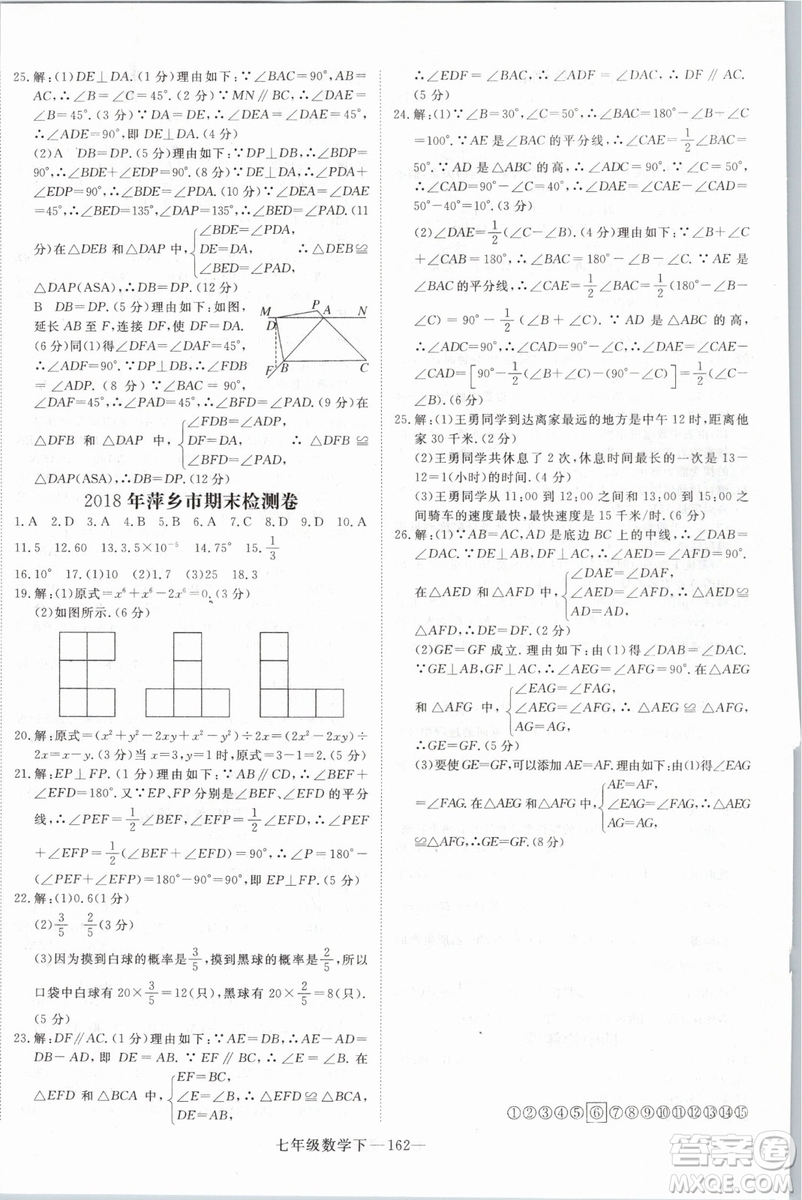 25.解:(1)DE⊥DA.(1分)理由如下:∵∠BAC=90°,AB=
AC,∴∠B=∠C=45°.(2分)∵MN∥BC,∴∠DAE=
∠B=45°.(3分)∵DA=DE,∴∠DEA=∠DAE=45°,
∴∠ADE=90°,即DE⊥DA.(4分)
(2)A DB=DP.(5分)理由如下:∵DP⊥DB,∴∠BDP=
90°.(6分)由(1)知∠EDA=90°.(8分)∵∠BDE+
∠EDP=90°,∴∠BDE=∠PDA.(10分)∵∠DEA=∠DAE
=45°,∴∠BED=135°,∠DAP=135°,∴∠BED=∠PAD.(11
分)在△DEB和△DAP中,{∠BDE=∠PDA, DE=DA, ∠BED=∠PAD, ∴△DEB≌
△DAP(ASA),∴DB=DP.(12分)
B DB=DP.(5分)理由如下:如图,
延长AB至F,连接DF,使DF=DA.
(6分)同(1)得∠DFA=∠DAF=
45°,∠ADF=90°.∵DP⊥DB,∴
∠FDB=∠ADP.(8分)∵∠BAC=90°,
∠DAF=45°,∴∠PAD=45°,∴∠DFB=∠PAD.(9分)在
△DFB和△DAP中,{∠FDB=∠ADP, DF=DA, ∠DFB=∠DAP, ∴△DFB≌
△DAP(ASA),∴DB=DP.(12分)
M P A N
D
F B C
2018年萍乡市期末检测卷
1.A 2.D 3.A 4.C 5.D 6.A 7.C 8.D 9.D 10.A
11.5 12.60 13.3.5×10⁻⁵ 14.75° 15.1/3
16.10° 17.(1)10 (2)1.7 (3)25 18.3
19.解:(1)原式=x⁶+x⁶-2x⁶=0.(3分)
(2)如图所示.(6分)
20.解:原式=(x²+y²-2xy+x²-y²)÷2x=(2x²-2xy)÷
2x=x-y.(3分)当x=3,y=1时,原式=3-1=2.(5分)
21.解:EP⊥FP.(1分)理由如下:∵AB∥CD,∴∠BEF+
∠EFD=180°.∵EP、FP分别是∠BEF、∠EFD的平分
线,∴∠PEF=1/2∠BEF,∠EFP=1/2∠EFD,∴∠PEF
+∠EFP=1/2(∠BEF+∠EFD)=90°,∴∠P=180°-
(∠PEF+∠EFP)=180°-90°=90°,即EP⊥FP.(5分)
22.解:(1)0.6(1分)
(2)3/5 2/5(2分)
(3)因为摸到白球的概率是3/5,摸到黑球的概率是2/5,所以
口袋中白球有20×3/5=12(只),黑球有20×2/5=8(只).
(5分)
23.解:DF∥AC.(1分)理由如下:∵AE=DB,∴AE-AD=
DB-AD,即ED=AB.∵EF∥BC,∴∠E=∠B.(2分)在
△EFD和△BCA中,{EF=BC, ∠E=∠B, ED=BA, ∴△EFD≌△BCA(SAS),
∴∠EDF=∠BAC,∴∠ADF=∠DAC,∴DF∥AC.
(5分)
24.解:(1)∵∠B=30°,∠C=50°,∴∠BAC=180°-∠B-∠C
=100°.∵AE是∠BAC的平分线,∴∠CAE=1/2∠BAC=
50°.∵AD是△ABC的高,∴∠ADC=90°,∴∠CAD=
90°-∠C=90°-50°=40°,∴∠DAE=∠CAE-∠CAD
=50°-40°=10°.(3分)
(2)∠DAE=1/2(∠C-∠B).(4分)理由如下:∵∠B+∠C
+∠CAB=180°,∴∠BAC=180°-∠B-∠C.∵AE是
∠BAC的平分线,∴∠CAE=1/2∠BAC=1/2(180°-∠B
-∠C)=90°-1/2(∠B+∠C).∵AD是△ABC的高,∴
∠ADC=90°,∴∠CAD=90°-∠C,∴∠DAE=∠CAE-
∠CAD=[90°-1/2(∠B+∠C)]-(90°-∠C)=1/2(∠C
-∠B).(6分)
25.解:(1)王勇同学到达离家最远的地方是中午12时,距离他
家30千米.(2分)
(2)王勇同学共休息了2次,可用来吃午餐的一次是13-
12=1(小时)的时间.(4分)
(3)王勇从11:00到12:00和13:00到15:00这两段时
间骑车的速度最快,最快速度是15千米/时.(6分)
26.解:(1)∵AB=AC,AD是底边BC上的中线,∴∠DAB=
∠DAC.(1分)∵DE⊥AB,DF⊥AC,∴∠AED=∠AFD.
在△AED和△AFD中,{∠DAE=∠DAF, ∠AED=∠AFD, AD=AD, ∴△AED≌
△AFD,∴DE=DF.(2分)
(2)GE=GF成立.理由如下:由(1)得∠DAB=∠DAC.
∵GE⊥AB,GF⊥AC,∴∠AEG=∠AFG=90°.在△AEG
和△AFG中,{∠EAG=∠FAG, ∠AEG=∠AFG, AG=AG, ∴△AEG≌△AFG,
∴GE=GF.(5分)
(3)要使GE=GF,可以添加AE=AF.理由如下:由(1)得∠EAG
=∠FAG.在△AEG和△AFG中,{AE=AF, ∠EAG=∠FAG, AG=AG, ∴△AEG
≌△AFG,∴GE=GF.(8分)
①②③④⑤⑥⑦⑧⑨⑩⑪⑫⑬⑭⑮
七年级数学下—162—
答案圈
MXQE.COM